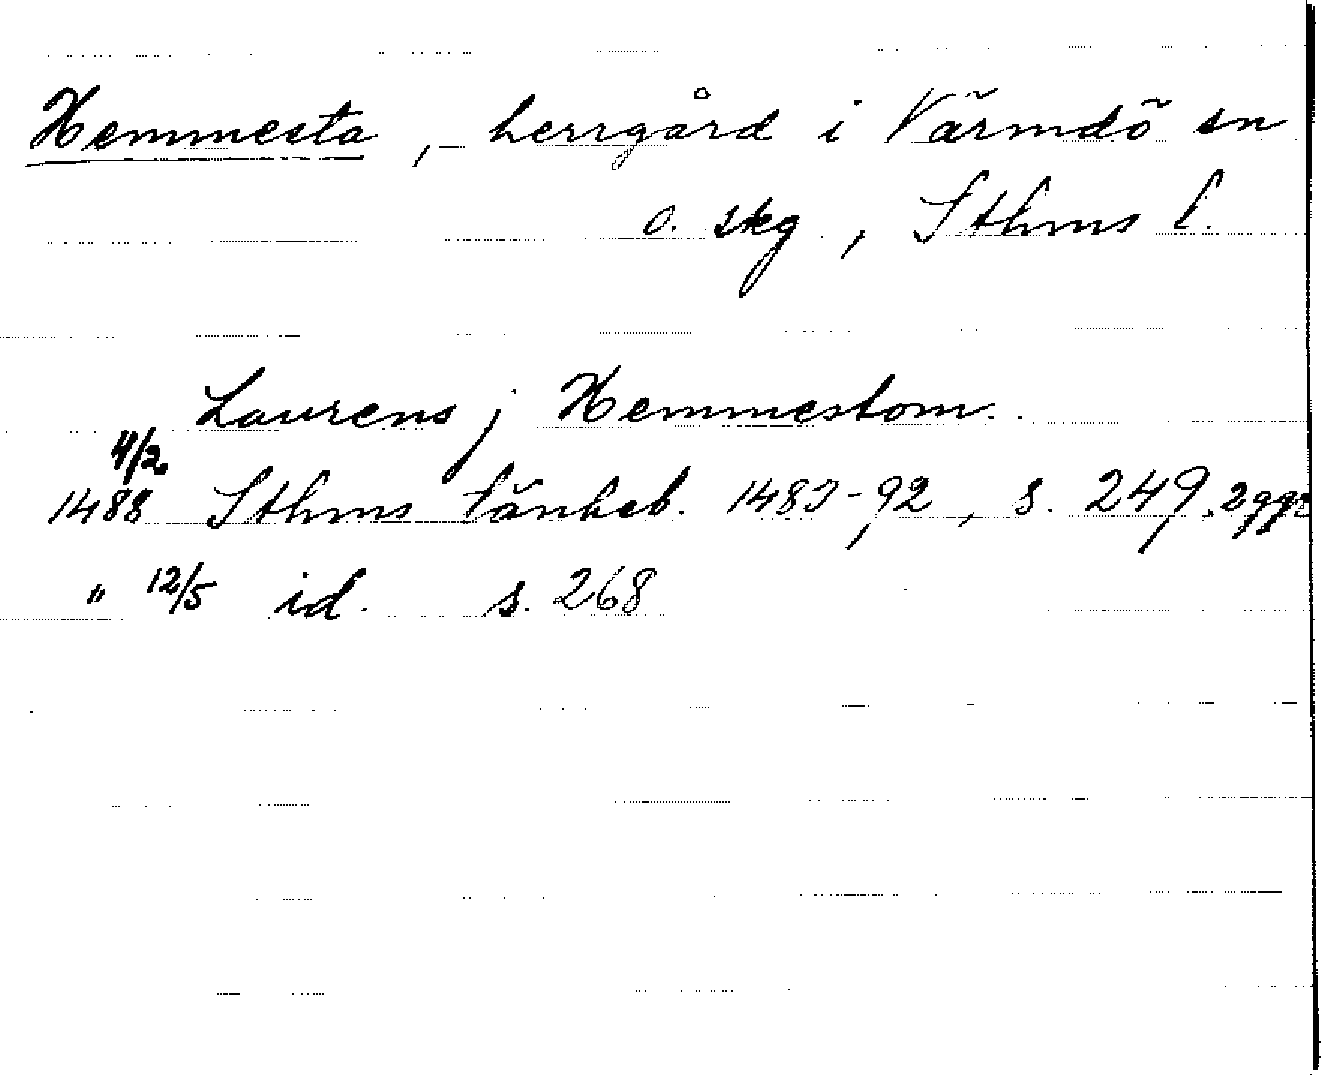 Hemmesta, herrgård i Värmdö sn
o. skg, Sthms l.
Laurens j Hemmestom.
4/2.
1488 Sthms tänkeb. 1483-92, s. 249, 2 ggr
" 12/5 id. s. 268